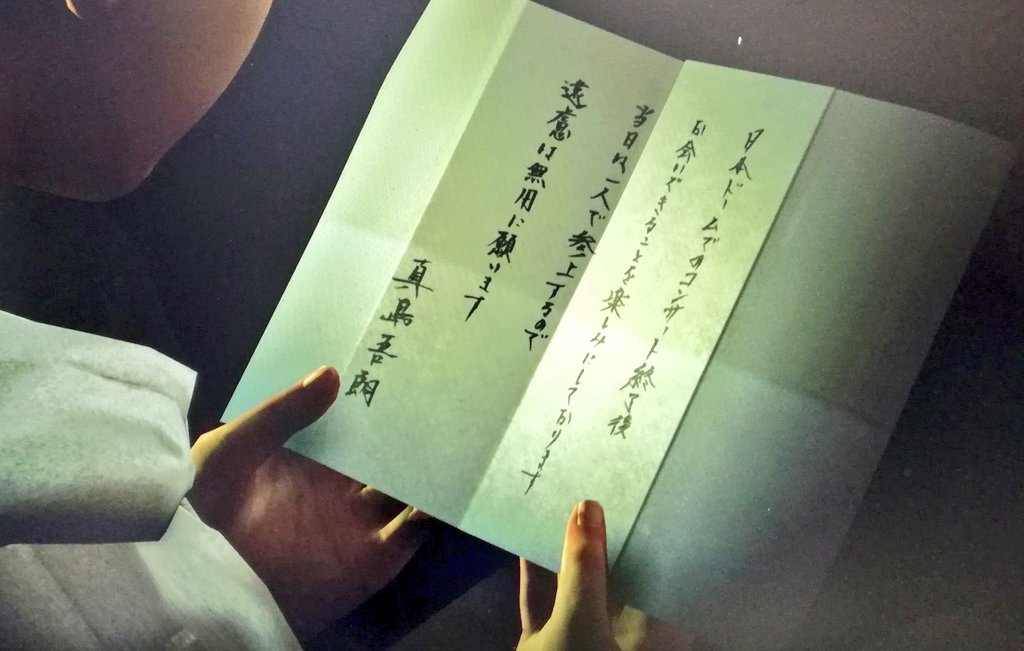 日本ドームでのコンサート終了後
お会いできることを楽しみにしております
当日は一人で参上するので
遠慮は無用に願います
真島吾朗